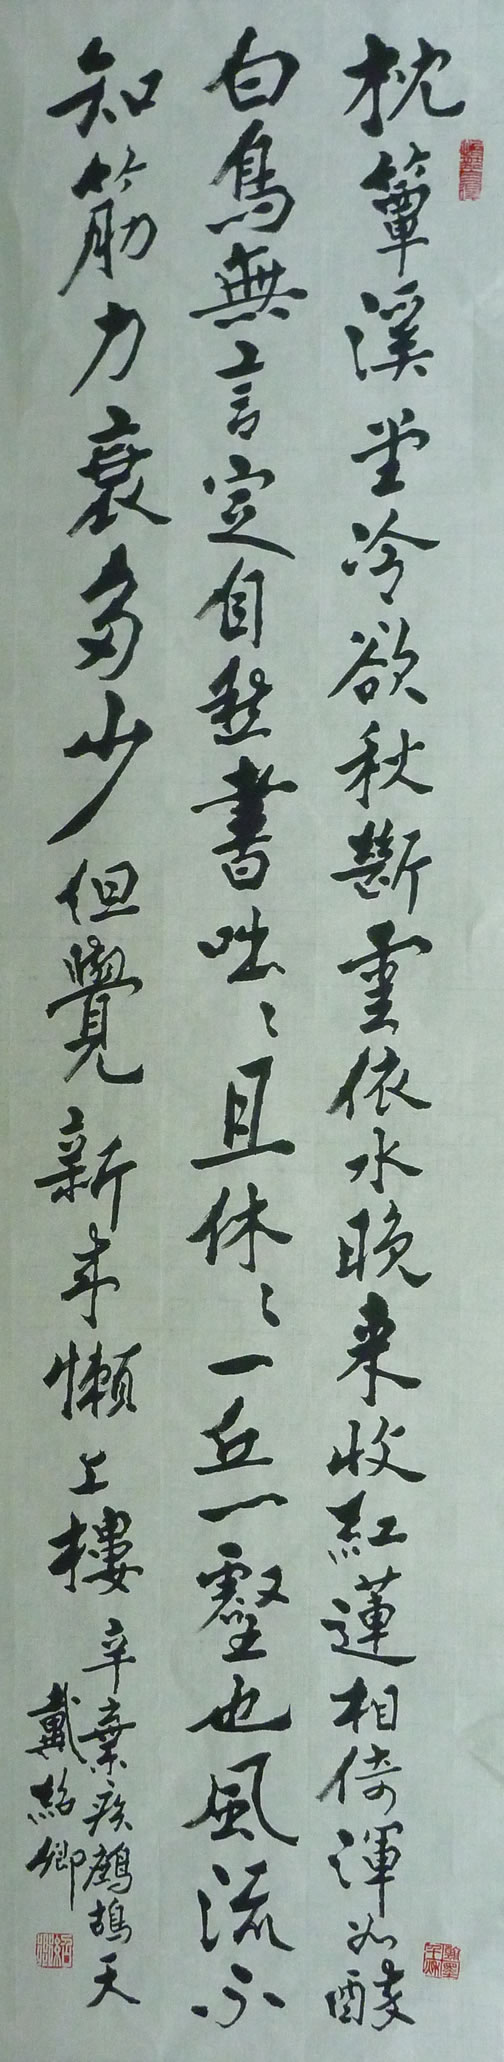 枕簟溪堂冷欲秋斷雲依水晚來收紅蓮相倚渾如醉
白鳥無言定自愁書咄〻且休〻一丘一壑也風流不
知筋力衰多少但覺新來懶上樓
辛棄疾鷓鴣天
戴紹卿